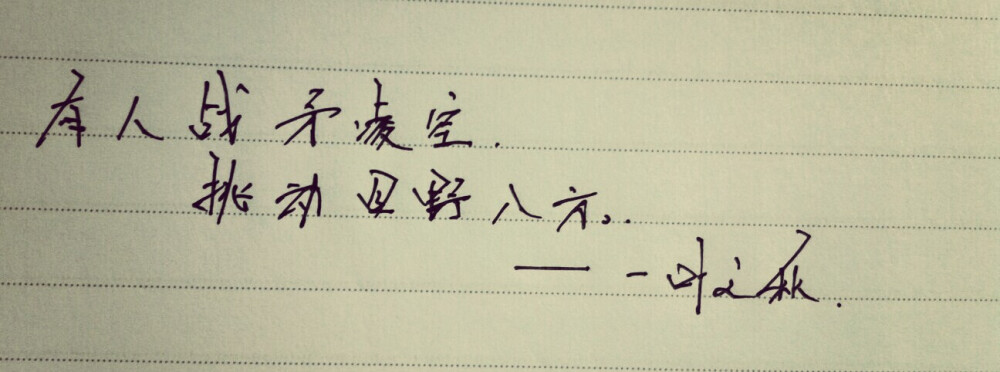 有人战矛凌空.
挑动四野八方。
—— 一叶之秋.